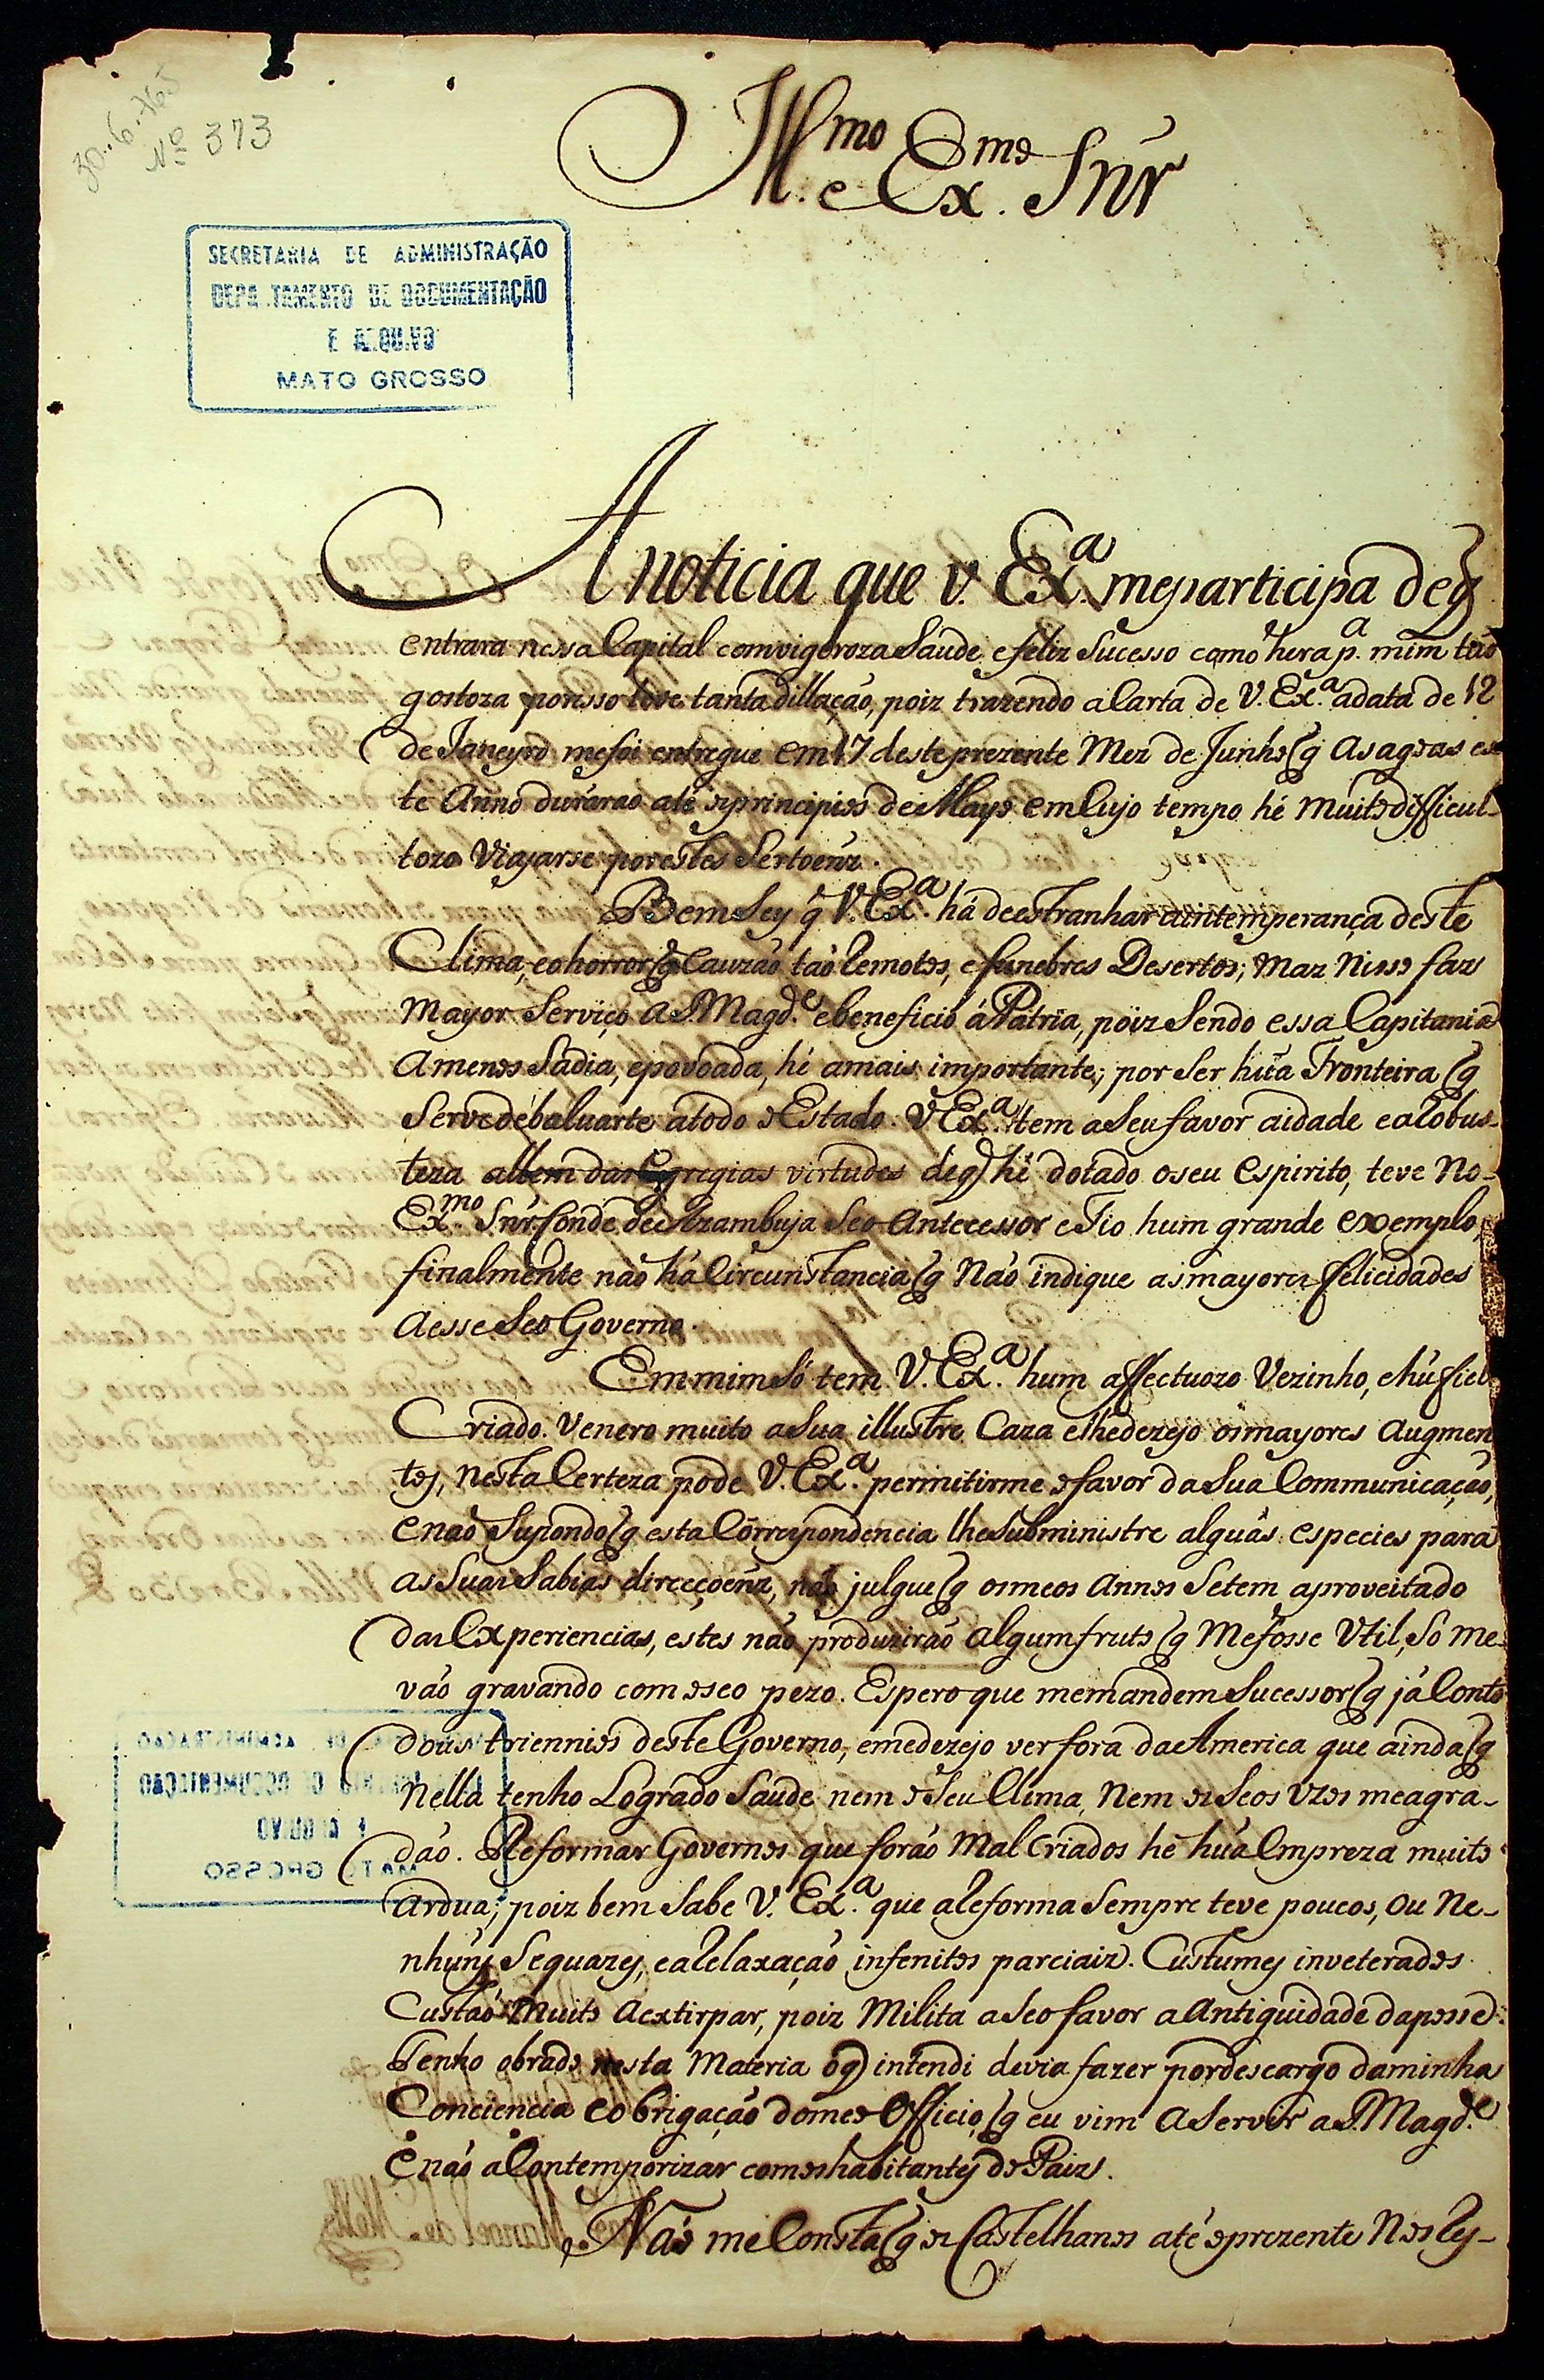 30..6..765
Nº 373
Ill.mo e Ex.mo Snr
SECRETARIA DE ADMINISTRAÇÃO
DEPARTAMENTO DE DOCUMENTAÇÃO
E ARQUIVO
MATO GROSSO
A noticia que V. Ex.ª me participa de q̃
entrara nessa Capital com vigoroza Saude, e feliz Sucesso como hera p.ª mim taõ
gostoza por isso teve tanta dillação, poiz trazendo a Carta de V. Ex.ª a data de 12
de Janeyro me foi entregue em 17 deste prezente Mez de Junho q̃ as agoas es
te Anno duràraõ até o principio de Mayo em Cujo tempo hé muito difficul-
tozo Viajarse por estes Sertoenz.
Bem Sey q̃ V. Ex.ª há de estranhar a intemperança deste
Clima, e o horror q̃ Cauzaõ taõ Remotos, e funebres Desertos; Maz Nisso faz
Mayor Serviço a S. Magd.e e beneficio á Patria, poiz Sendo essa Capitania
a menos Sadia, e povoada, hé a mais importante; por Ser huã Fronteira q̃
Serve de baluarte a todo o Estado. V. Ex.ª tem a Seu favor a idade e a Robus-
teza allem das egregias virtudes de q̃ hé dotado o seu espirito, teve No-
Ex.mo Snr. Conde de Azambuja Seo Antecessor e Tio hum grande exemplo,
finalmente naõ há Circunstancia q̃ Naõ indique as mayores felicidades
a esse Seo Governo.
Em mim Só tem V. Ex.ª hum affectuozo Vezinho, e hũ fiel
Criado. Venero muito a Sua illustre Caza e lhe dezejo os mayores Augmen
tos, nesta Certeza pode V. Ex.ª permitirme o favor da Sua Communicação,
e naõ Supondo q̃ esta Correspondencia lhe Subministre alguãs especies para
as Suas Sabias direcçoenz, naõ julgue q̃ os meos Annos Setem aproveitado
das Experiencias, estes naõ produziraõ algum fruto q̃ Me fosse Util, Só me
vaõ gravando com o seo pezo. Espero que me mandem Sucessor q̃ já Conto
dous triennios deste Governo, e me dezejo ver fora da America que ainda q̃
Nella tenho Logrado Saude nem o Seu Clima, Nem os Seos Uzos me agra-
daõ. Reformar Governos que foraõ Mal Criados he huã Empreza muito
ardua; poiz bem Sabe V. Ex.ª que a Reforma Sempre teve poucos, ou Ne-
nhuns Sequazes, e a Relaxação infenitos parciaiz. Custumes inveterados
Custaõ Muito a extirpar, poiz Milita a Seo favor a Antiguidade da posse.
Tenho obrado nesta Materia o q̃ intendi devia fazer por descargo da minha
Conciencia e obrigação do meo Officio, q̃ eu vim a Servir a S. Magd.e
e naõ a Contemporizar com os habitantes do Paiz.
Naõ me Consta q̃ os Castelhanos até o prezente Nos Ry-